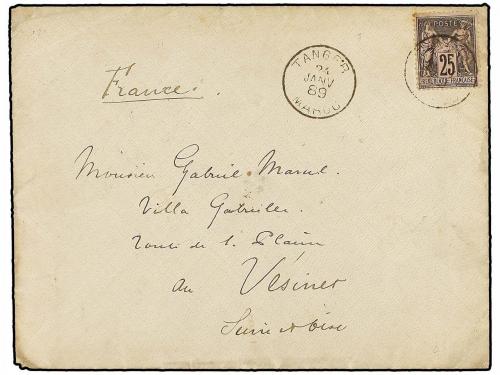 POSTE
25
TANGER
24
JANV
89
MAROC
France.
Monsieur Gabriel Marcel.
Villa Gabrielle.
route de la Plaine
au Vésinet
Seine et Oise